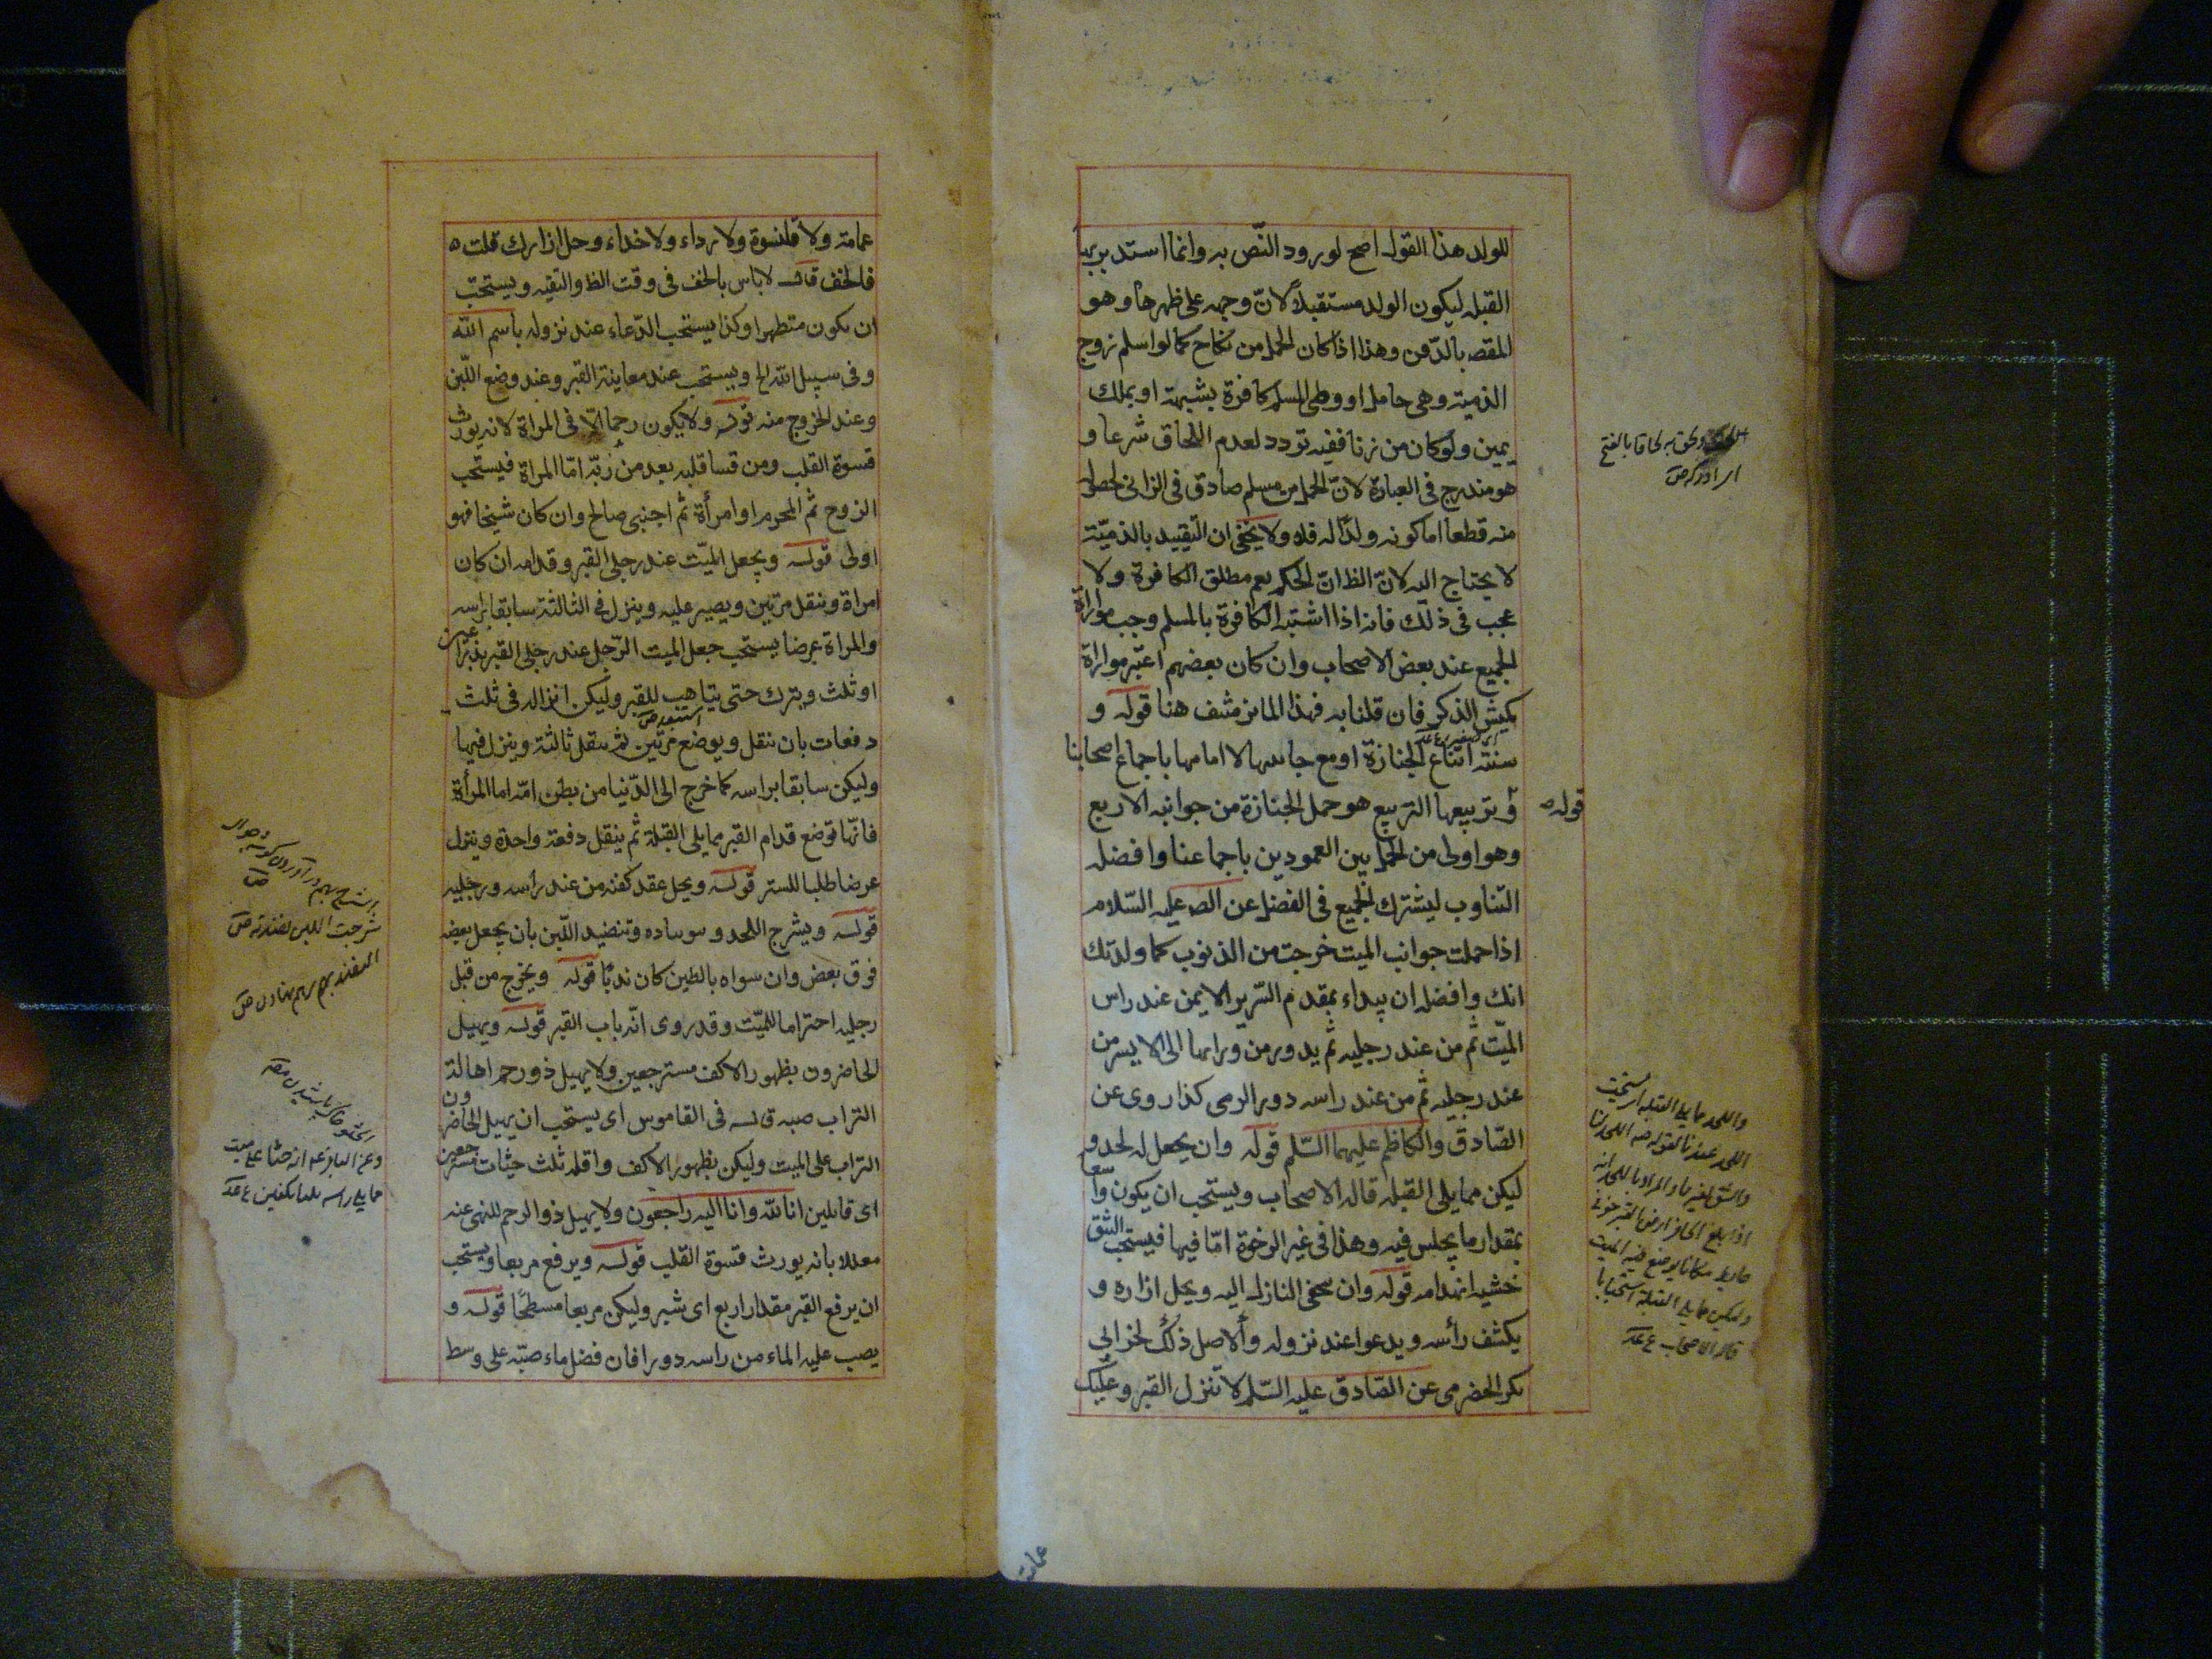 للولد هذا القول اصح لورود النّص به وانما استدبر بها
القبله ليكون الولد مستقبلاً لانّ وجهه على ظهرها وهو
المقص بالدّفن وهذا اذا كان الحمل من نكاح كما لو اسلم زوج
الذميّة وهى حامل او وطى المسلم كافرة بشبهة او بملك
يمين ولو كان من زنا ففيه تردد لعدم اللحاق شرعا و
هو مندرج فى العبارة لانّ الحمل من مسلم صادق فى الزانى لحصوله
منه قطعا اما كونه ولدًا له فلا ولا يخفى ان التقييد بالذميّة
لا يحتاج اليه لانّ الظ انّ الحكم يعم مطلق الكافرة ولا
عجب فى ذلك فانه اذا اشتبه الكافرة بالمسلم وجب مواراة
الجميع عند بعض الاصحاب وان كان بعضهم اعتبر مواراة
كميش الذكر فان قلنا به فهذا المانز منتف هنا قوله و
سنّة اتباع الجنازة او مع جانبيها لا امامها باجماع اصحابنا
قوله
و تربيعها التربيع هو حمل الجنازة من جوانبه الاربع
وهو اولى من الحمل بين العمودين باجماعنا وافضله
التناوب ليشترك الجميع فى الفضل عن الص عليه السّلام
اذا حملت جوانب الميت خرجت من الذنوب كما ولدتك
امك وافضله ان يبداء بمقدم السّرير الايمن عند راس
الميّت ثم من عند رجليه ثم يدور من ورائها الى الايسر من
عند رجليه ثم من عند راسه دور الرحى كذا روى عن
الصّادق والكاظم عليهما السّلم قوله وان يجعل له لحد و
ليكن مما يلى القبله قاله الاصحاب ويستحب ان يكون واسعا
بمقدار ما يجلس فيه وهذا فى غير الرخوة امّا فيها فيستحب الشق
خشيه انهدامه قوله وان يتحفى النازل اليه ويحل ازاره و
يكشف رأسه ويدعوا عند نزوله والاصل ذلك لخبر ابى
بكر الحضرمى عن الصّادق عليه السّلم لا تنزل القبر وعليك
عمامة
واللحد مما يلى القبله اى يستحب
اللحد عندنا لقوله ص اللحد لنا
والشق لغيرنا والمراد باللحد انه
اذا بلغ الحافر ارض القبر حفر فى
حايط مكانا يوضع فيه الميت
وليكن مما يلى القبلة استحبابا
قاله الاصحاب ع عد
عمامة ولا قلنسوة ولا رداء ولا حذاء وحل ازارك قلت
فالخف قال لا باس بالخف فى وقت الظ والتقيه ويستحب
ان يكون متطهرا وكذا يستحب الدّعاء عند نزوله باسم اللّه
وفى سبيل اللّه الخ ويستحب عند معاينة القبر وعند وضع اللّبن
وعند الخروج منه قوله ولا يكون رحما الّا فى المراة لانه يورث
قسوة القلب ومن قسا قلبه بعد من ربّه امّا المراة فيستحب
الزوج ثم المحرم او امرأة ثم اجنبى صالح وان كان شيخا فهو
اولى قوله ويجعل الميّت عند رجلى القبر وقدامه ان كان
امراة وينقل مرّتين ويصبر عليه وينزل فى الثالثة سابقا براسه
والمراة عرضا يستحب جعل الميت الرّجل عند رجلى القبر بذراعين
او ثلث ويترك حتى يتاهب للقبر وليكن انزاله فى ثلث
دفعات بان ينقل ويوضع مرّتين ثم ينقل ثالثة وينزل فيها
وليكن سابقا براسه كما خرج الى الدّنيا من بطن امّه اما المرأة
فانّها توضع قدام القبر مما يلى القبلة ثم ينقل دفعة واحدة وينزل
عرضا طلبا للستر قوله ويحل عقد كفنه من عند راسه ورجليه
قوله ويشرج اللحد وسوساده وتنضيد اللّبن بان يجعل بعضه
فوق بعض وان سواه بالطين كان ندبًا قوله ويخرج من قبل
رجليه احتراما للميّت وقد روى انّه باب القبر قوله ويهيل
الحاضرون بظهور الاكف مسترجعين ولا يهيل ذو رحم اهالة
التراب صبه قاله فى القاموس اى يستحب ان يهيل الحاضرون
التراب على الميت وليكن بظهور الاكف واقله ثلث حثيات مسترجعين
اى قايلين انا للّه وانا اليه راجعون ولا يهيل ذو الرحم للنهى عنه
معللا بانه يورث قسوة القلب قوله ويرفع مربعا ويستحب
ان يرفع القبر مقدار اربع اى شبر وليكن مربعا مسطحًا قوله و
يصب عليه الماء من راسه دورا فان فضل ماء صبّه على وسط
شرجت اللبن نضدته ص
وعن الباقر ع انه حثا على ميت
مما يلى راسه ثلثا بكفيه ع عد